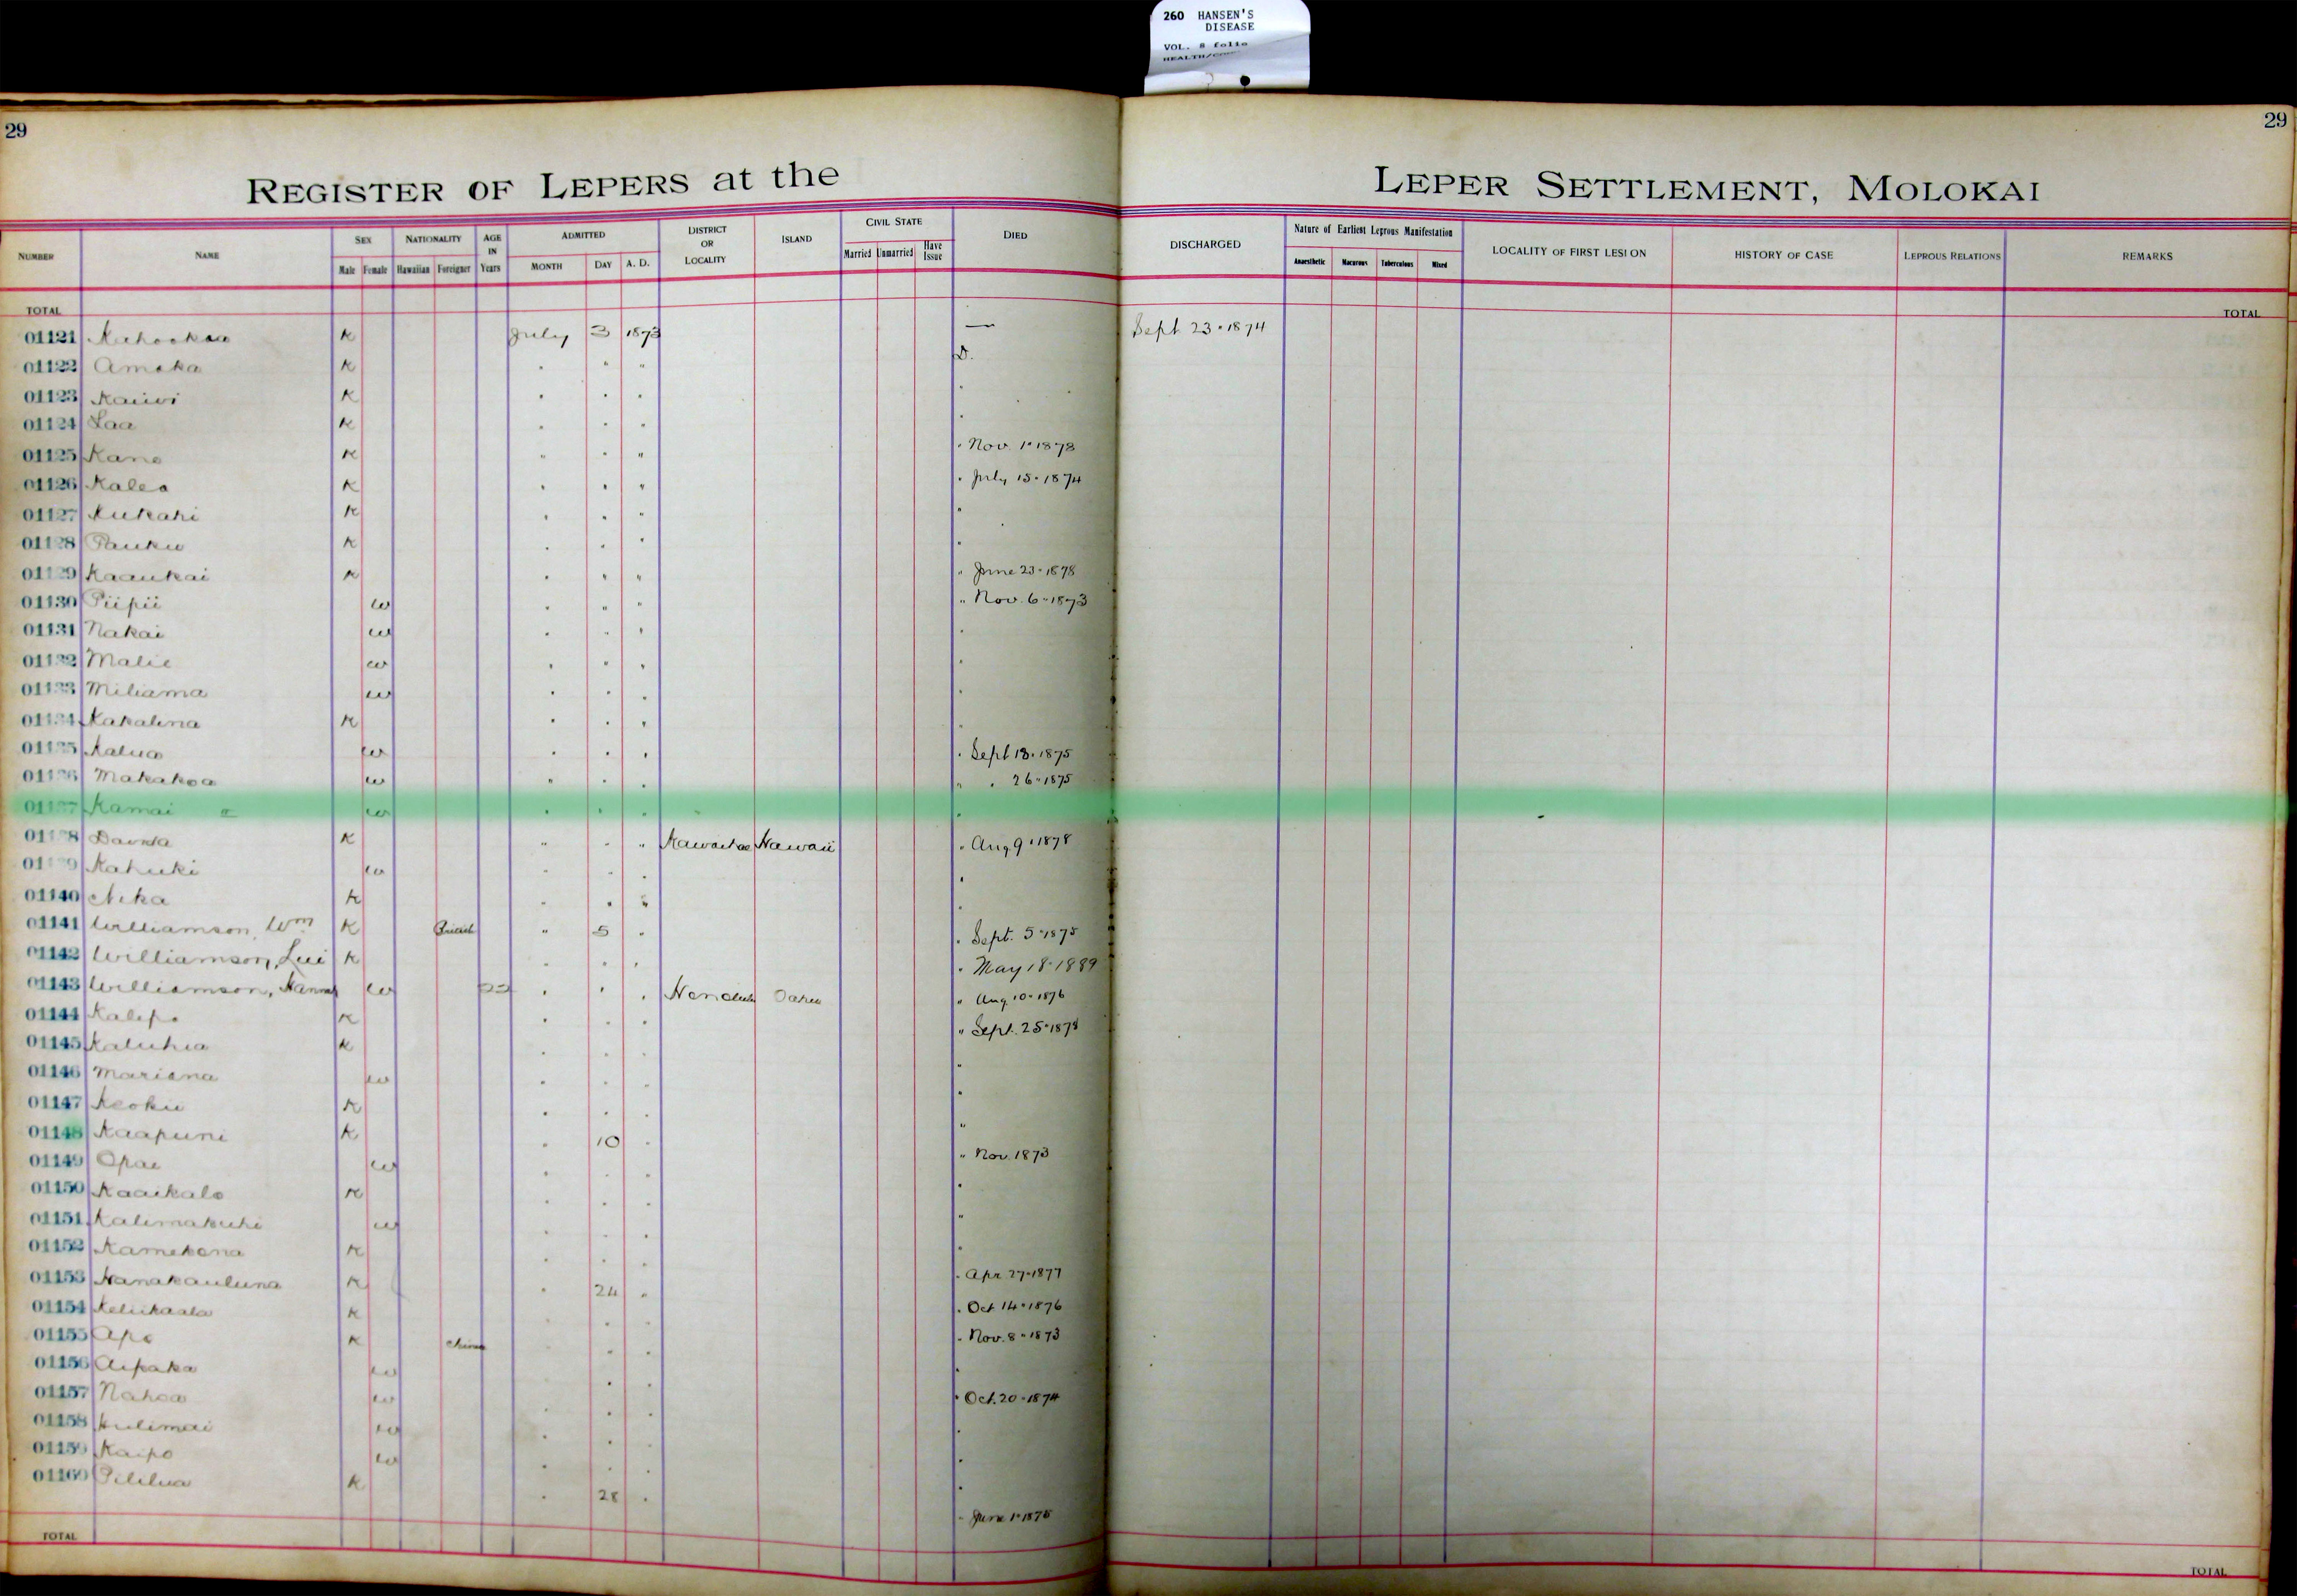 260 HANSEN'S
DISEASE
VOL. 8 folio
29
29
REGISTER OF LEPERS at the LEPER SETTLEMENT, MOLOKAI
NUMBER NAME SEX Male Female NATIONALITY Hawaiian Foreigner AGE IN Years ADMITTED MONTH DAY A. D. DISTRICT OR LOCALITY ISLAND CIVIL STATE Married Unmarried Have Issue DIED DISCHARGED Nature of Earliest Leprous Manifestation Anaesthetic Macurous Tuberculous Mixed LOCALITY OF FIRST LESION HISTORY OF CASE LEPROUS RELATIONS REMARKS
TOTAL TOTAL
01121 K July 3 1873 — Sept 23 · 1874
01122 Amaka K " " " D.
01123 Kaiwi K " " " "
01124 Laa K " " " "
01125 Kane K " " " " Nov. 1 · 1878
01126 Kalea K " " " " July 15 · 1874
01127 Kukahi K " " " "
01128 Pauku K " " " "
01129 Kaaukai K " " " " June 23 · 1878
01130 Piipii W " " " " Nov. 6 · 1873
01131 Nakai W " " " "
01132 Malie W " " " "
01133 Miliama W " " " "
01134 Kakalina K " " " "
01135 Kalua W " " " " Sept 18 · 1875
01136 Makakoa W " " " " " 26 · 1875
01137 Kamai W " " " "
01138 K " " " Kawaihae Hawaii " Aug 9 · 1878
01139 Kahuki W " " " "
01140 Nika K " " " "
01141 Williamson, Wm K British " 5 " " Sept. 5 · 1875
01142 Williamson, Lui K " " " " May 18 · 1889
01143 Williamson, Hannah W " " " Honolulu Oahu " Aug. 10 · 1876
01144 Kalepo K " " " " Sept. 25 · 1878
01145 Kaluhia K " " " "
01146 Mariana W " " " "
01147 Keoku K " " " "
01148 Kaapuni K " 10 " "
01149 Opae W " " " " Nov. 1873
01150 Kaaikalo K " " " "
01151 Kalimakuhi W " " " "
01152 Kamekona K " " " "
01153 Nanakauluna K " 24 " " Apr 27 · 1877
01154 Keliikaala K " " " " Oct 14 · 1876
01155 Apo K China " " " " Nov. 8 · 1873
01156 Aipaka W " " " "
01157 Nahoa W " " " " Oct. 20 · 1874
01158 Kulimai W " " " "
01159 Kaipo W " " " "
01160 Pililua K " 28 " " June 1 · 1875
TOTAL TOTAL